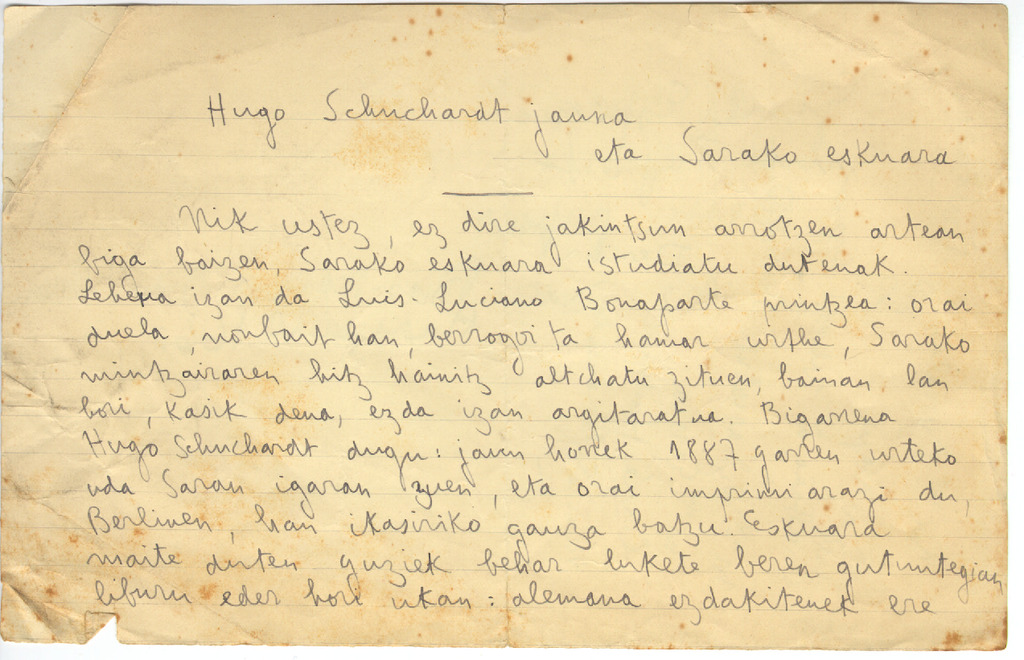 Hugo Schuchardt jauna
eta Sarako eskuara
Nik ustez, ez dire jakintsun arrotzen artean
biga baizen, Sarako eskuara istudiatu dutenak.
Lehena izan da Luis-Luciano Bonaparte printzea: orai
duela, nonbait han, berrogoi ta hamar urthe, Sarako
mintzairaren hitz hainitz altchatu zituen, bainan lan
hori, kasik dena, ezda izan argitaratua. Bigarrena
Hugo Schuchardt dugu: jaun horrek 1887 garren urteko
uda Saran igaran zuen, eta orai imprimi arazi du,
Berlinen, han ikasiriko gauza batzu. Eskuara
maite duten guziek behar lukete beren gutuntegian
liburu eder hori ukan: alemana ezdakitenek ere